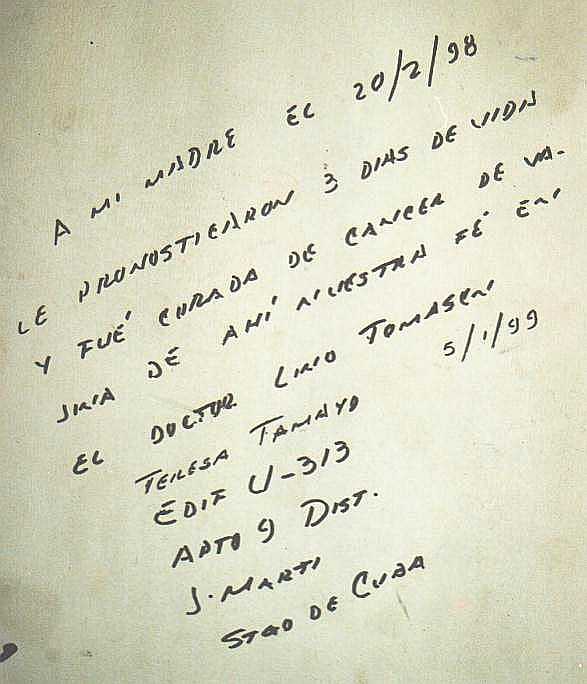 A MI MADRE EL 20/2/98
LE PRONOSTICARON 3 DIAS DE VIDA
Y FUÉ CURADA DE CANCER DE VA-
JINA DE AHÍ NUESTRA FÉ EN
EL DOCTOR LIRIO TOMASEN
5/1/99
TERESA TAMAYO
EDIF U-313
APTO 9 DIST.
J. MARTI
STGO DE CUBA